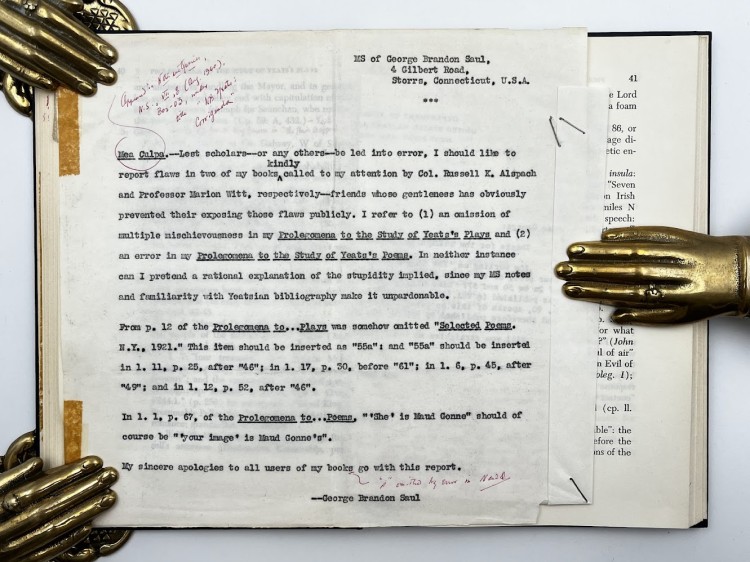 MS of George Brandon Saul,
4 Gilbert Road,
Storrs, Connecticut, U.S.A.
***
Mea Culpa.--Lest scholars--or any others--be led into error, I should like to
kindly
report flaws in two of my books called to my attention by Col. Russell K. Alspach
and Professor Marion Witt, respectively--friends whose gentleness has obviously
prevented their exposing those flaws publicly. I refer to (1) an omission of
multiple mischievousness in my Prolegomena to the Study of Yeats's Plays and (2)
an error in my Prolegomena to the Study of Yeats's Poems. In neither instance
can I pretend a rational explanation of the stupidity implied, since my MS notes
and familiarity with Yeatsian bibliography make it unpardonable.
From p. 12 of the Prolegomena to...Plays was somehow omitted "Selected Poems.
N.Y., 1921." This item should be inserted as "55a"; and "55a" should be inserted
in l. 11, p. 25, after "46"; in l. 17, p. 30, before "61"; in l. 6, p. 45, after
"49"; and in l. 12, p. 52, after "46".
In l. 1, p. 67, of the Prolegomena to...Poems, "'She' is Maud Gonne" should of
course be "'your image' is Maud Gonne's".
My sincere apologies to all users of my books go with this report.
omitted by error in
--George Brandon Saul
41
e Lord
a foam
86, or
age di-
etic en-
insula:
"Seven
on Irish
miles N
speech:
or what
?" (John
l of air"
n Evil of
oleg. 1);
(cp. ll.
ble": the
efore the
ns of the